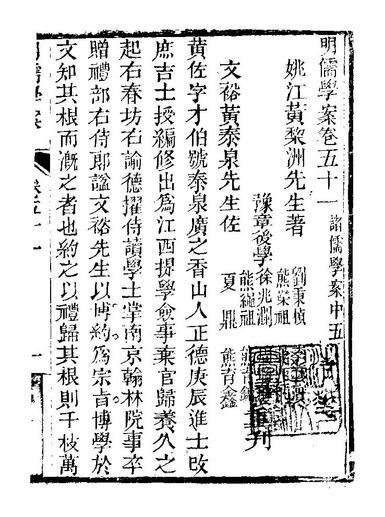 明儒學案卷五十一 諸儒學案中五
姚江黃黎洲先生著
豫章後學
劉秉楨
熊榮祖
徐兆瀾
熊繩祖
夏鼎
熊育鑫
重刊
文裕黃泰泉先生佐
黃佐字才伯號泰泉廣之香山人正德庚辰進士改
庶吉士授編修出為江西提學僉事棄官歸養久之
起右春坊右諭德擢侍讀學士掌南京翰林院事卒
贈禮部右侍郎諡文裕先生以博約為宗旨博學於
文知其根而溉之者也約之以禮歸其根則千枝萬